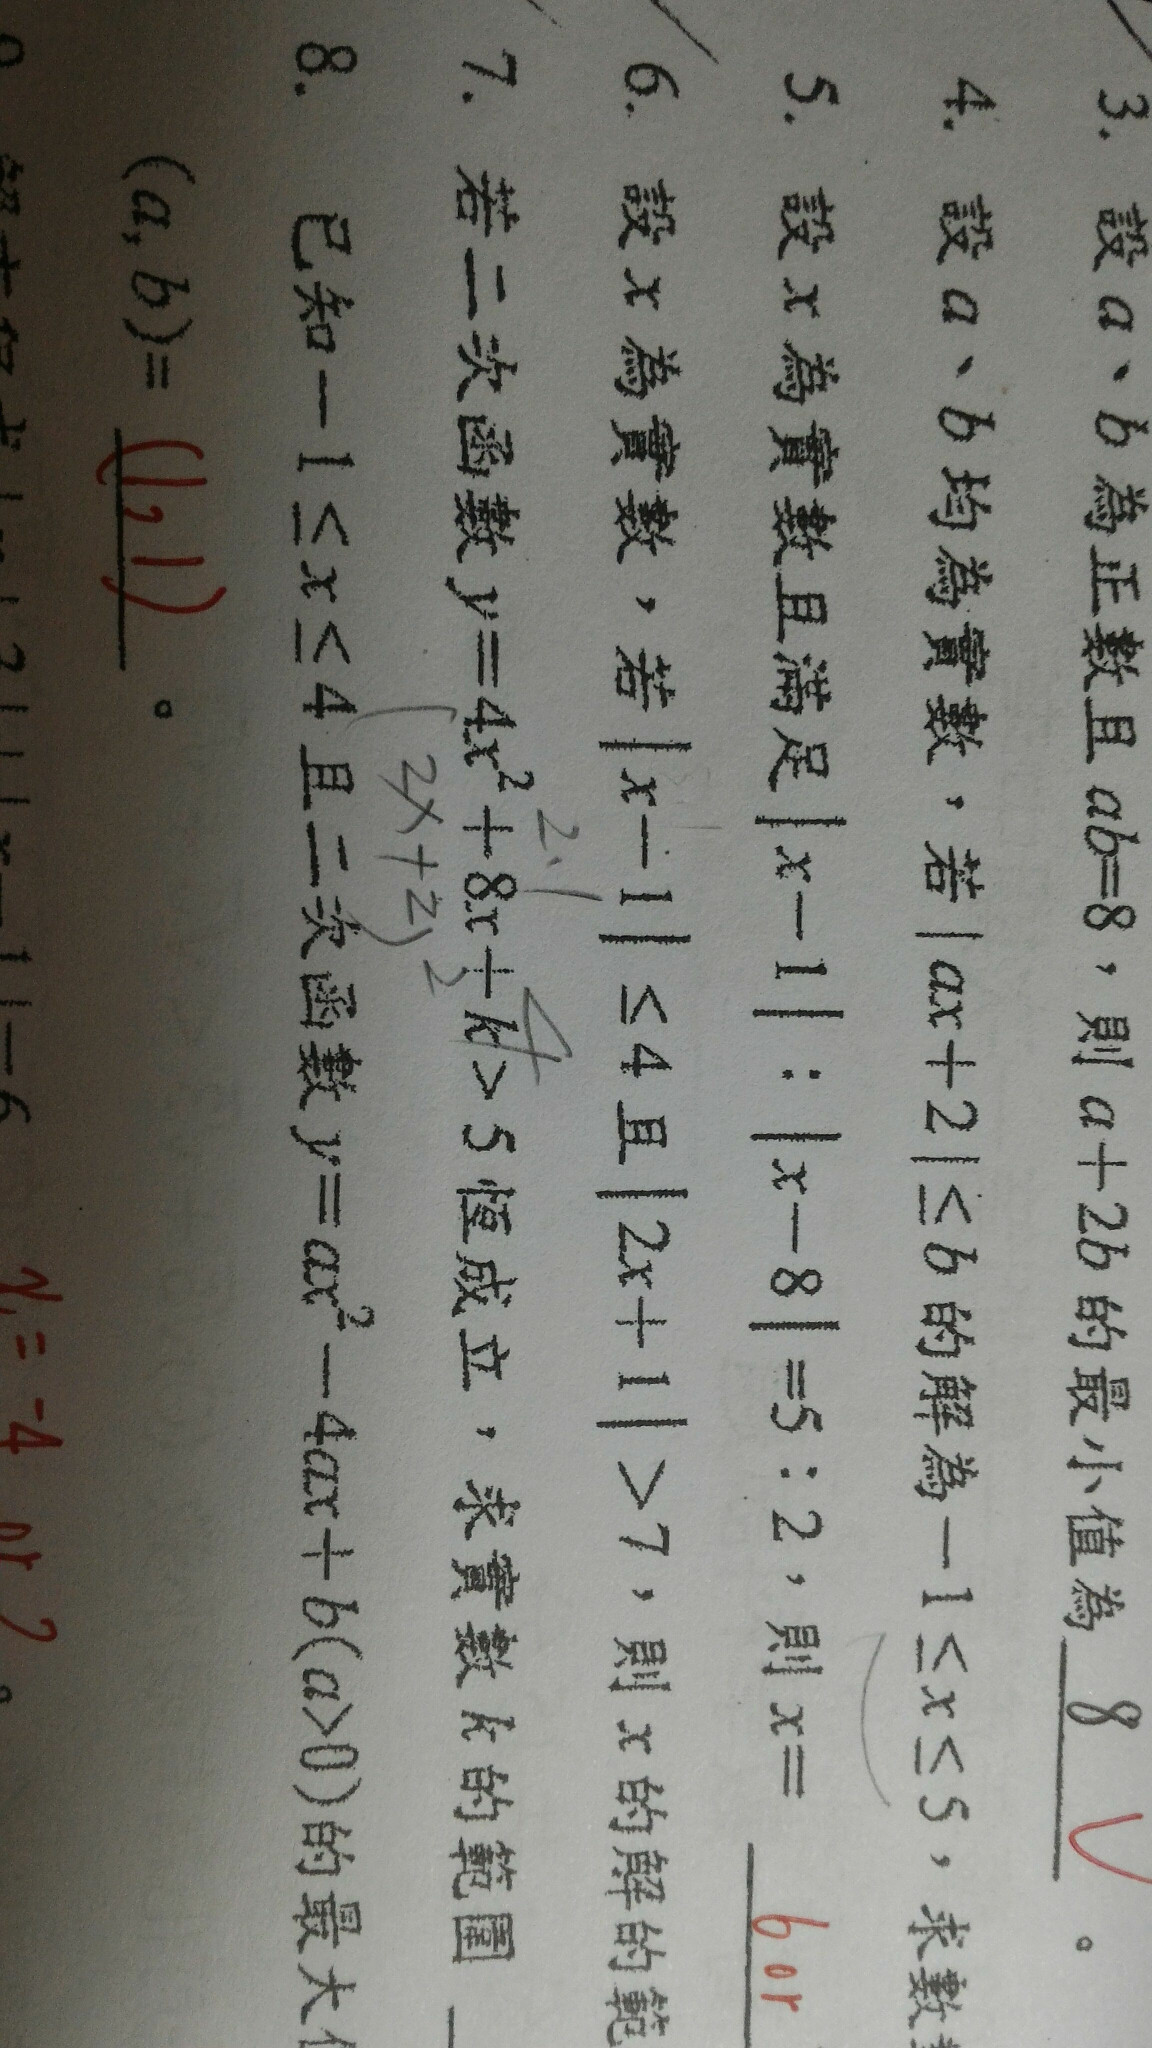 3. 設a、b為正數且ab=8，則a+2b的最小值為 8 。
4. 設a、b均為實數，若|ax+2|≤b的解為-1≤x≤5，求數
5. 設x為實數且滿足|x-1|:|x-8|=5:2，則x= 6 or
6. 設x為實數，若|x-1|≤4且|2x+1|>7，則x的解的範
2·1 4
7. 若二次函數y=4x²+8x+k>5恆成立，求實數k的範圍
(2x+2)²
8. 已知-1≤x≤4且二次函數y=ax²-4ax+b(a>0)的最大
(a, b)= (1,1) 。
x=-4 or 2